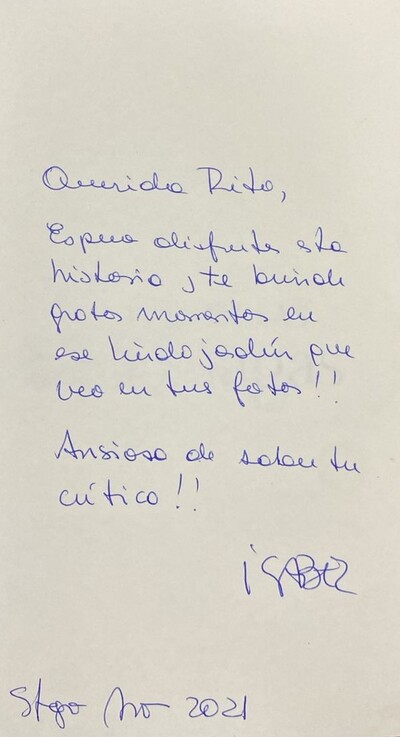 Querida Rita,
Espero disfrutes esta
historia y te brinde
gratos momentos en
ese lindo jardín que
veo en tus fotos!!
Ansiosa de saber tu
crítica!!
Stgo 2021